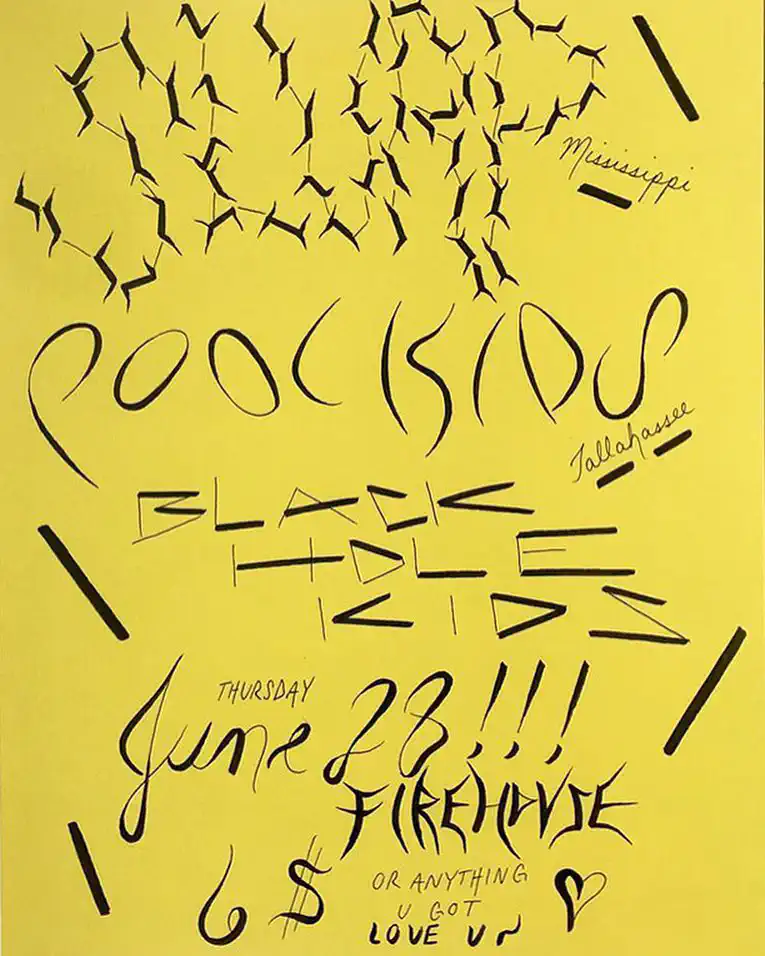 Mississippi
POOL KIDS
Tallahassee
BLACK
HOLE
KIDS
THURSDAY
June 28!!!
FIREHOUSE
6 $
OR ANYTHING
U GOT
LOVE U ~